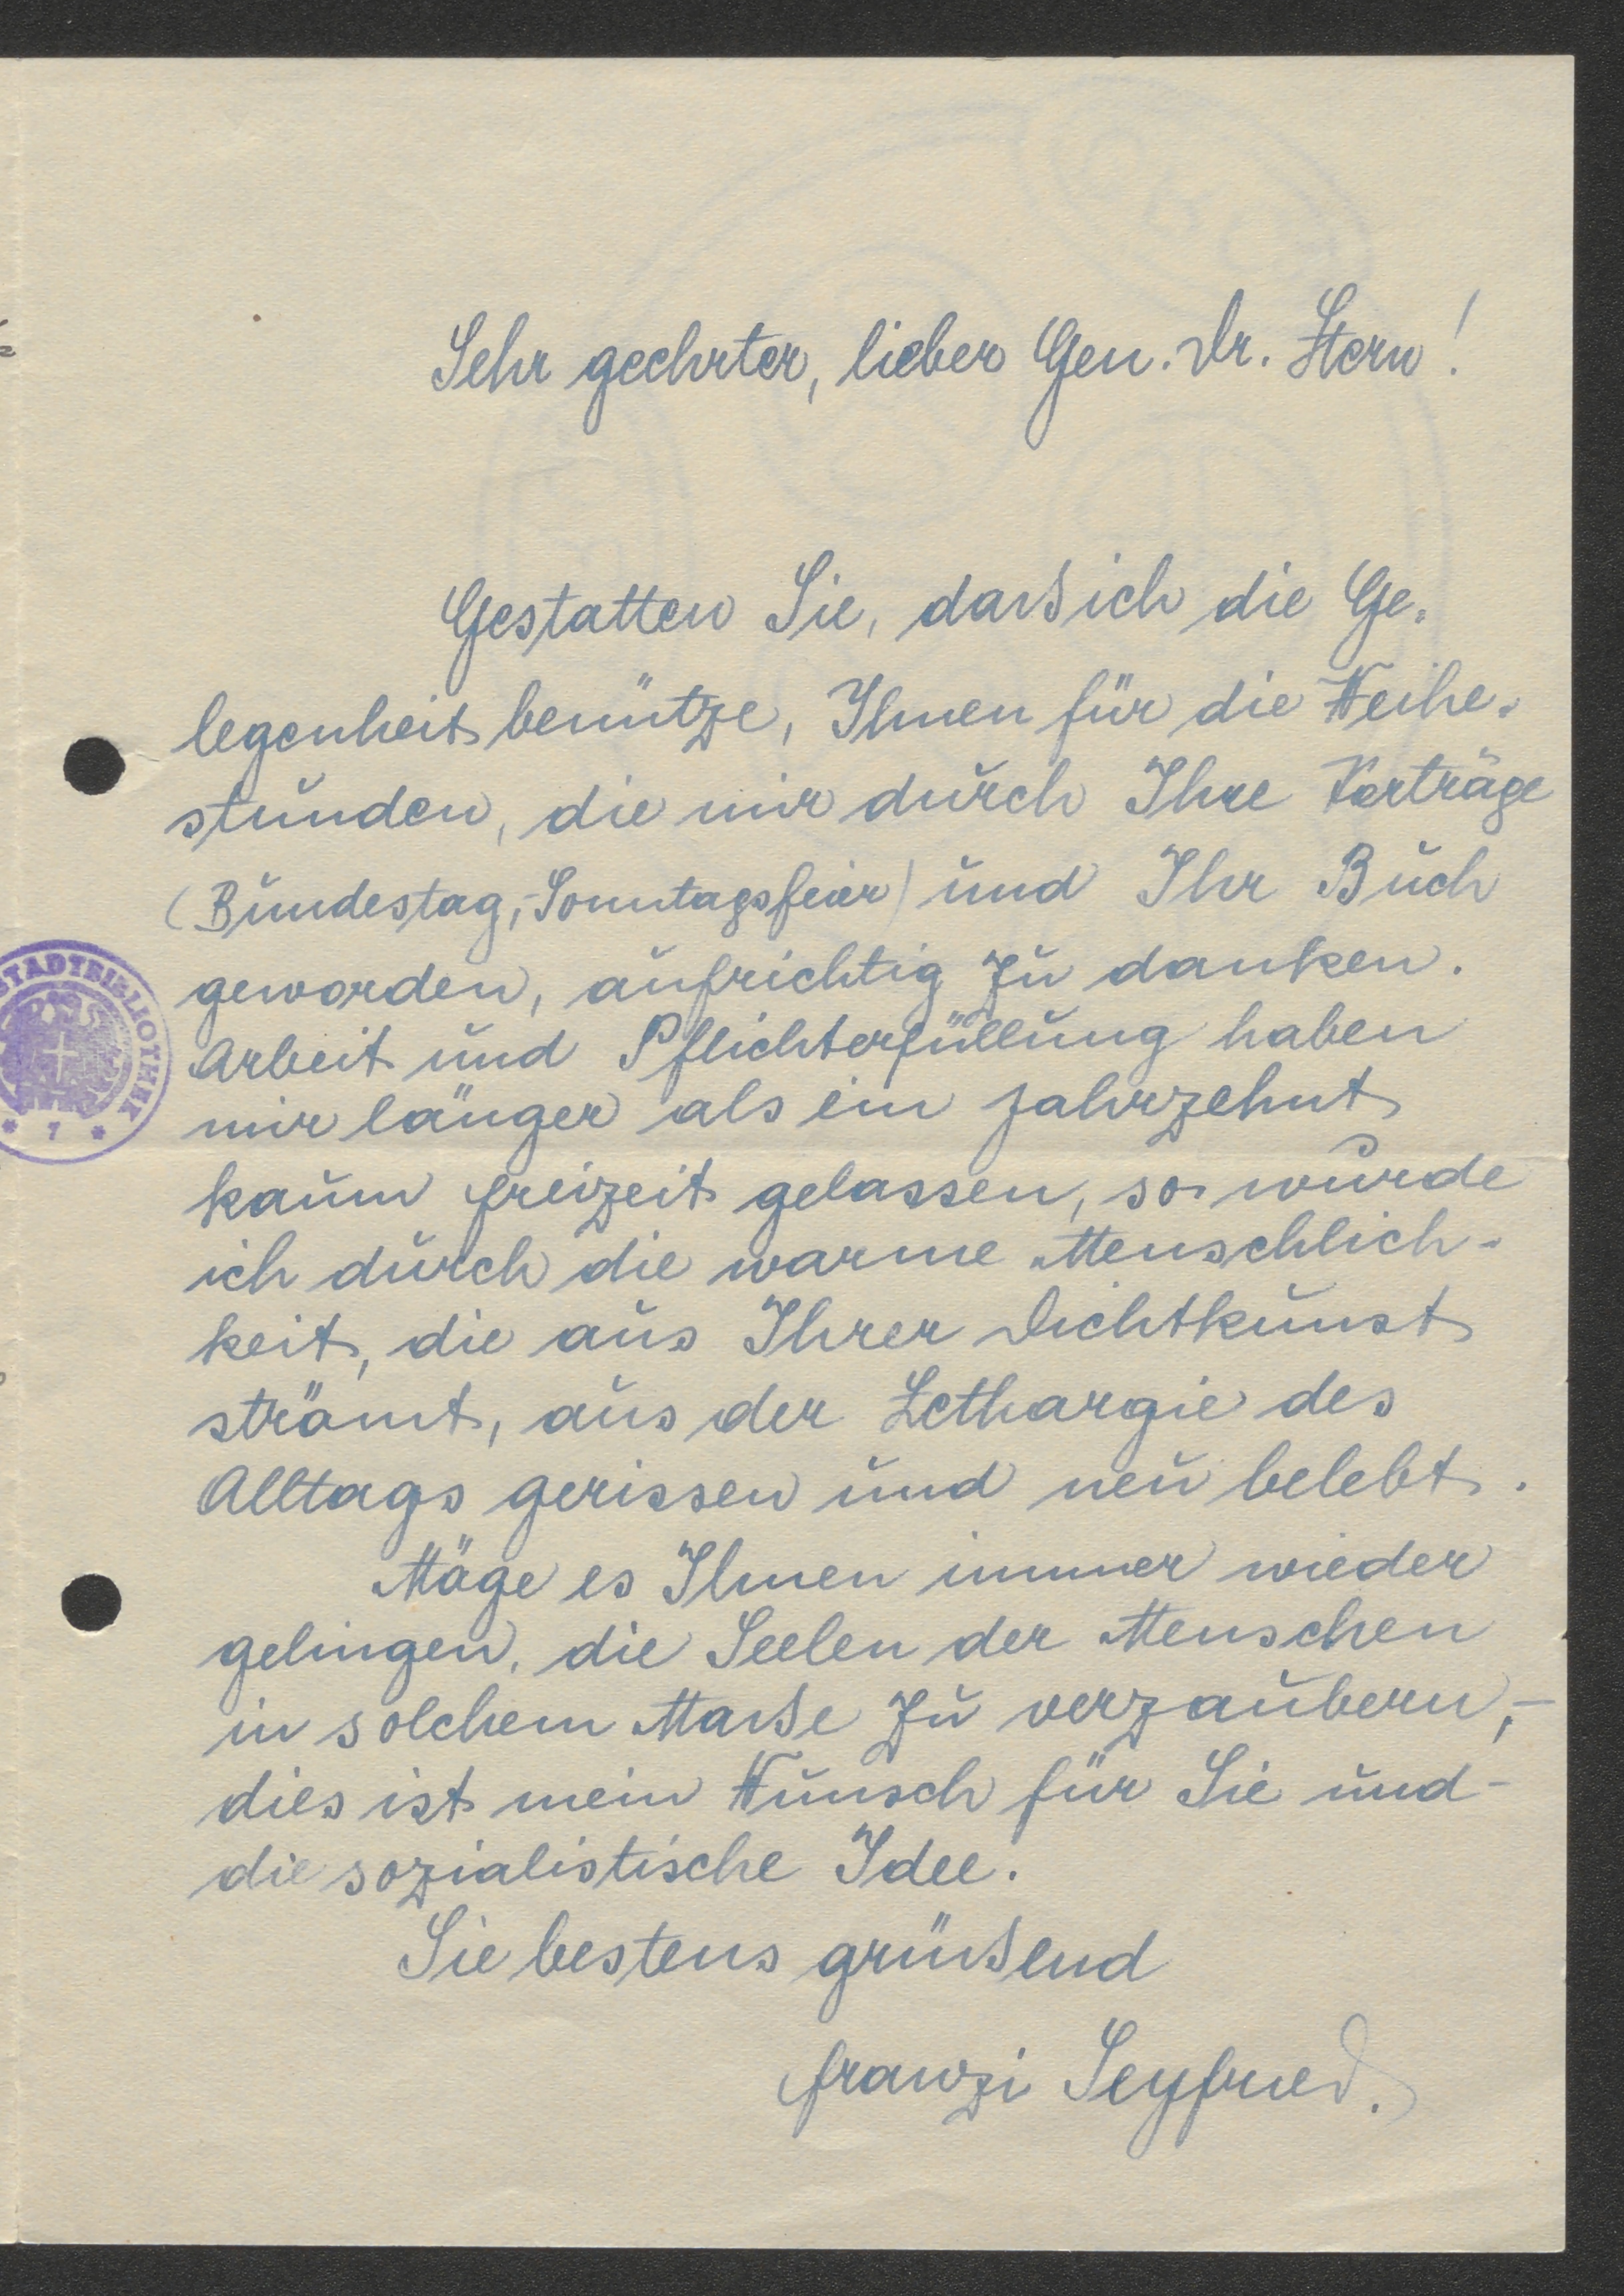 Sehr geehrter, lieber Gen. Dr. Stern!
Gestatten Sie, dass ich die Ge-
legenheit benütze, Ihnen für die Weihe-
stunden, die mir durch Ihre Vorträge
(Bundestag,-Sonntagsfeier) und Ihr Buch
geworden, aufrichtig zu danken.
Arbeit und Pflichterfüllung haben
mir länger als ein Jahrzehnt
kaum Freizeit gelassen, so wurde
ich durch die warme Menschlich-
keit, die aus Ihrer Dichtkunst
strömt, aus der Lethargie des
Alltags gerissen und neu belebt.
Möge es Ihnen immer wieder
gelingen, die Seelen der Menschen
in solchem Maße zu verzaubern,-
dies ist mein Wunsch für Sie und-
die sozialistische Idee.
Sie bestens grüßend
Franzi Seyfried.
STADTBIBLIOTHEK
* 7 *